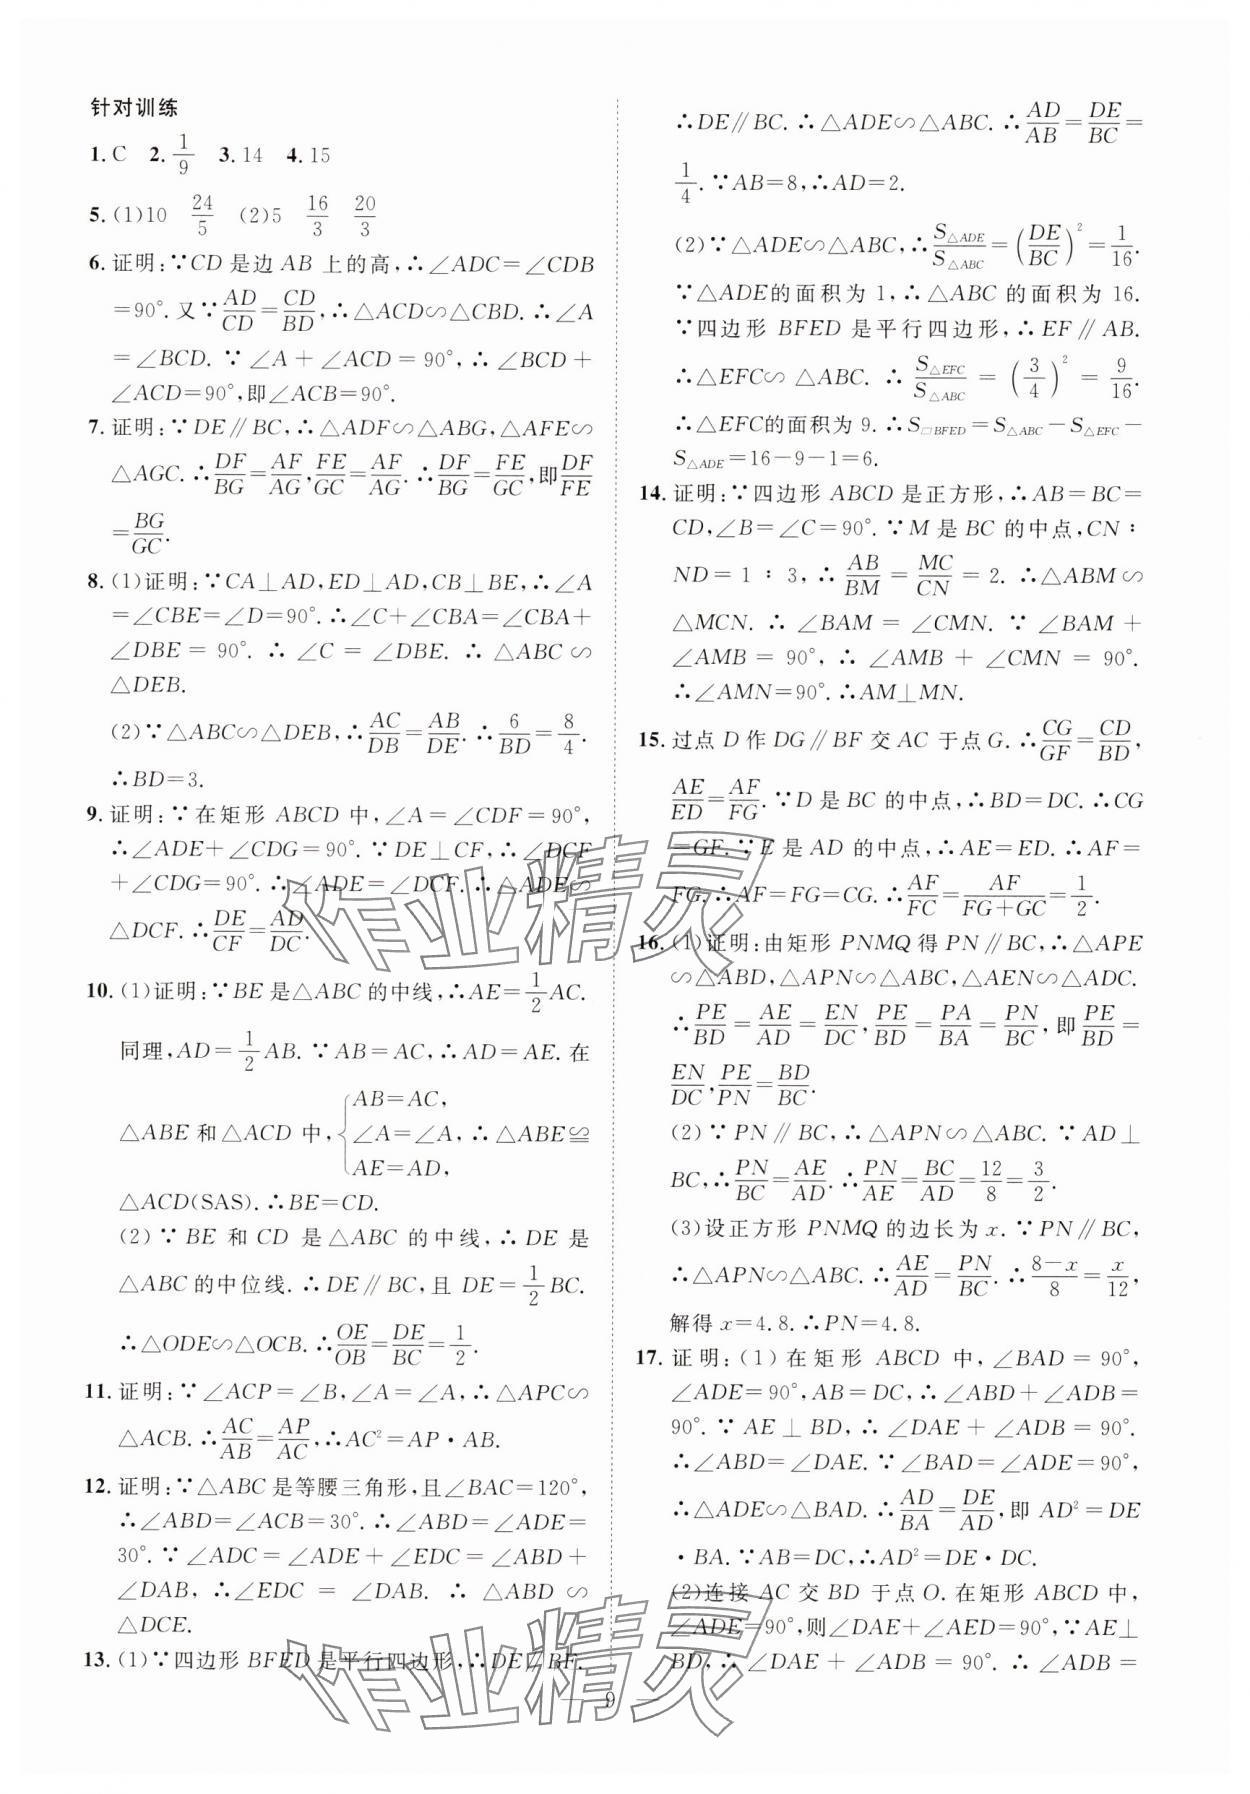 针对训练
1. C 2. 1/9 3. 14 4. 15
5. (1)10 24/5 (2)5 16/3 20/3
6. 证明:∵CD 是边 AB 上的高,∴∠ADC=∠CDB
=90°. 又∵AD/CD=CD/BD,∴△ACD∽△CBD. ∴∠A
=∠BCD. ∵∠A+∠ACD=90°,∴∠BCD+
∠ACD=90°,即∠ACB=90°.
7. 证明:∵DE∥BC,∴△ADF∽△ABG,△AFE∽
△AGC. ∴DF/BG=AF/AG,FE/GC=AF/AG. ∴DF/BG=FE/GC,即DF/FE
=BG/GC.
8. (1)证明:∵CA⊥AD,ED⊥AD,CB⊥BE,∴∠A
=∠CBE=∠D=90°. ∴∠C+∠CBA=∠CBA+
∠DBE=90°. ∴∠C=∠DBE. ∴△ABC∽
△DEB.
(2)∵△ABC∽△DEB,∴AC/DB=AB/DE. ∴6/BD=8/4.
∴BD=3.
9. 证明:∵在矩形 ABCD 中,∠A=∠CDF=90°,
∴∠ADE+∠CDG=90°. ∵DE⊥CF,∴∠DCF
+∠CDG=90°. ∴∠ADE=∠DCF. ∴△ADE∽
△DCF. ∴DE/CF=AD/DC.
10. (1)证明:∵BE 是△ABC 的中线,∴AE=1/2AC.
同理,AD=1/2AB. ∵AB=AC,∴AD=AE. 在
△ABE 和△ACD 中,{AB=AC,
∠A=∠A,∴△ABE≌
AE=AD,
△ACD(SAS). ∴BE=CD.
(2)∵BE 和 CD 是△ABC 的中线,∴DE 是
△ABC 的中位线. ∴DE∥BC,且 DE=1/2BC.
∴△ODE∽△OCB. ∴OE/OB=DE/BC=1/2.
11. 证明:∵∠ACP=∠B,∠A=∠A,∴△APC∽
△ACB. ∴AC/AB=AP/AC,∴AC²=AP·AB.
12. 证明:∵△ABC 是等腰三角形,且∠BAC=120°,
∴∠ABD=∠ACB=30°. ∴∠ABD=∠ADE=
30°. ∵∠ADC=∠ADE+∠EDC=∠ABD+
∠DAB,∴∠EDC=∠DAB. ∴△ABD∽
△DCE.
13. (1)∵四边形 BFED 是平行四边形,∴DE∥BF.
∴DE∥BC. ∴△ADE∽△ABC. ∴AD/AB=DE/BC=
1/4. ∵AB=8,∴AD=2.
(2)∵△ADE∽△ABC,∴S△ADE/S△ABC=(DE/BC)²=1/16.
∵△ADE的面积为 1,∴△ABC 的面积为 16.
∵四边形 BFED 是平行四边形,∴EF∥AB.
∴△EFC∽△ABC. ∴S△EFC/S△ABC=(3/4)²=9/16.
∴△EFC的面积为 9. ∴S▱BFED=S△ABC-S△EFC-
S△ADE=16-9-1=6.
14. 证明:∵四边形 ABCD 是正方形,∴AB=BC=
CD,∠B=∠C=90°. ∵M 是 BC 的中点,CN∶
ND=1∶3,∴AB/BM=MC/CN=2. ∴△ABM∽
△MCN. ∴∠BAM=∠CMN. ∵∠BAM+
∠AMB=90°,∴∠AMB+∠CMN=90°.
∴∠AMN=90°. ∴AM⊥MN.
15. 过点 D 作 DG∥BF 交 AC 于点 G. ∴CG/GF=CD/BD,
AE/ED=AF/FG. ∵D 是 BC 的中点,∴BD=DC. ∴CG
=GF. ∵E 是 AD 的中点,∴AE=ED. ∴AF=
FG. ∴AF=FG=CG. ∴AF/FC=AF/(FG+GC)=1/2.
16. (1)证明:由矩形 PNMQ 得 PN∥BC,∴△APE
∽△ABD,△APN∽△ABC,△AEN∽△ADC.
∴PE/BD=AE/AD=EN/DC,PE/BD=PA/BA=PN/BC,即PE/BD=
EN/DC,PE/PN=BD/BC.
(2)∵PN∥BC,∴△APN∽△ABC. ∵AD⊥
BC,∴PN/BC=AE/AD. ∴PN/AE=BC/AD=12/8=3/2.
(3)设正方形 PNMQ 的边长为 x. ∵PN∥BC,
∴△APN∽△ABC. ∴AE/AD=PN/BC. ∴(8-x)/8=x/12,
解得 x=4.8. ∴PN=4.8.
17. 证明:(1)在矩形 ABCD 中,∠BAD=90°,
∠ADE=90°,AB=DC,∴∠ABD+∠ADB=
90°. ∵AE⊥BD,∴∠DAE+∠ADB=90°.
∴∠ABD=∠DAE. ∵∠BAD=∠ADE=90°,
∴△ADE∽△BAD. ∴AD/BA=DE/AD,即 AD²=DE
·BA. ∵AB=DC,∴AD²=DE·DC.
(2)连接 AC 交 BD 于点 O. 在矩形 ABCD 中,
∠ADE=90°,则∠DAE+∠AED=90°,∵AE⊥
BD,∴∠DAE+∠ADB=90°. ∴∠ADB=
— 9 —
作业精灵
作业精灵